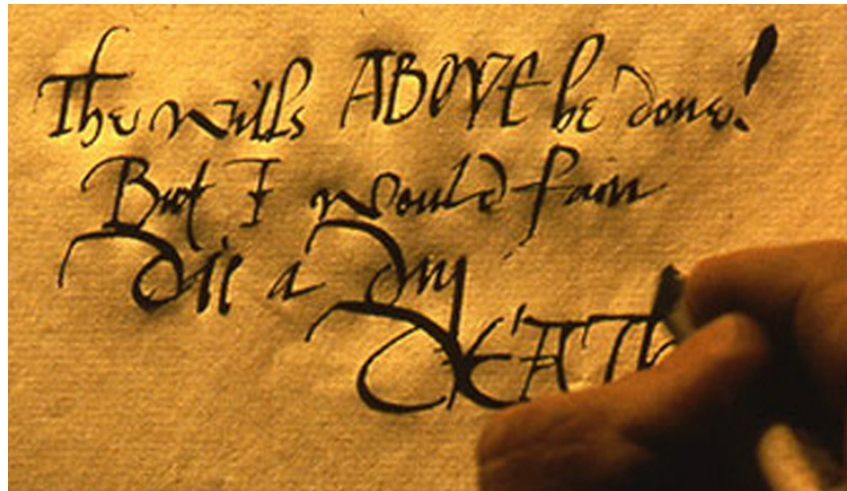 The wills ABOVE be done!
But I would fain
die a dry
DEATh